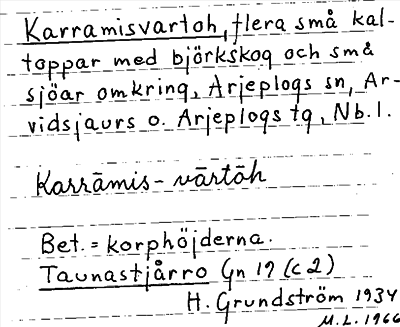 Karramisvartoh, flera små kal-
toppar med björkskog och små
sjöar omkring, Arjeplogs sn, Ar-
vidsjaurs o. Arjeplogs tg, Nb. l.
Karrāmis-vārtōh
Bet. = korphöjderna.
Taunastjårro Gn 19 (c2)
H. Grundström 1934
M.L. 1966